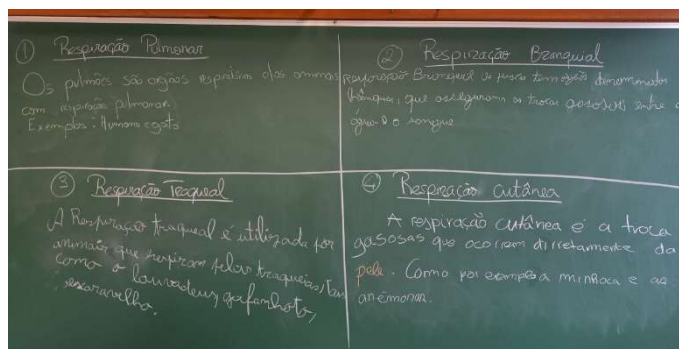 ① Respiração Pulmonar
Os pulmões são orgãos respiratórios dos animais
com respiração pulmonar.
Exemplos: Humano e gato
② Respiração Branquial
Respiração Branquial os peixes tem orgãos denominados
brânquias, que asseguram as trocas gasosas entre a
água e o sangue
③ Respiração Traqueal
A Respiração traqueal é utilizada por
animais que respiram pelas traqueias, tais
como o louvadeus, gafanhoto,
escaravelho.
④ Respiração cutânea
A respiração cutânea é a troca
gasosas que ocorrem diretamente da
pele. Como por exemplo a minhoca e as
anémonas.